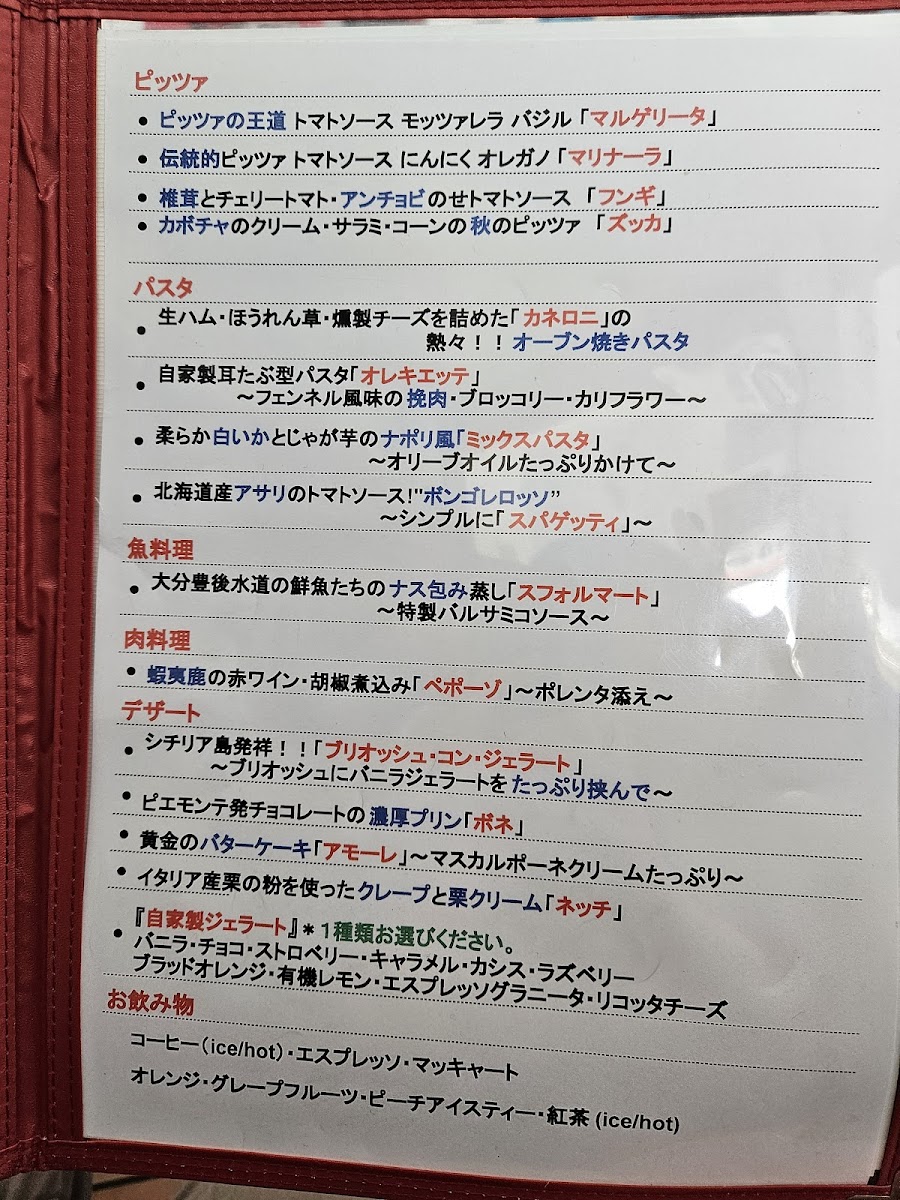 ピッツァ
• ピッツァの王道 トマトソース モッツァレラ バジル 「マルゲリータ」
• 伝統的ピッツァ トマトソース にんにく オレガノ 「マリナーラ」
• 椎茸とチェリートマト・アンチョビのせトマトソース 「フンギ」
• カボチャのクリーム・サラミ・コーンの秋のピッツァ 「ズッカ」
パスタ
• 生ハム・ほうれん草・燻製チーズを詰めた「カネロニ」の
熱々!! オーブン焼きパスタ
• 自家製耳たぶ型パスタ「オレキエッテ」
～フェンネル風味の挽肉・ブロッコリー・カリフラワー～
• 柔らか白いかとじゃが芋のナポリ風「ミックスパスタ」
～オリーブオイルたっぷりかけて～
• 北海道産アサリのトマトソース!"ボンゴレロッソ"
～シンプルに「スパゲッティ」～
魚料理
• 大分豊後水道の鮮魚たちのナス包み蒸し「スフォルマート」
～特製バルサミコソース～
肉料理
• 蝦夷鹿の赤ワイン・胡椒煮込み「ペポーゾ」～ポレンタ添え～
デザート
• シチリア島発祥!!「ブリオッシュ・コン・ジェラート」
～ブリオッシュにバニラジェラートをたっぷり挟んで～
• ピエモンテ発チョコレートの濃厚プリン「ボネ」
• 黄金のバターケーキ「アモーレ」～マスカルポーネクリームたっぷり～
• イタリア産栗の粉を使ったクレープと栗クリーム「ネッチ」
• 『自家製ジェラート』*1種類お選びください。
バニラ・チョコ・ストロベリー・キャラメル・カシス・ラズベリー
ブラッドオレンジ・有機レモン・エスプレッソグラニータ・リコッタチーズ
お飲み物
コーヒー(ice/hot)・エスプレッソ・マッキャート
オレンジ・グレープフルーツ・ピーチアイスティー・紅茶 (ice/hot)